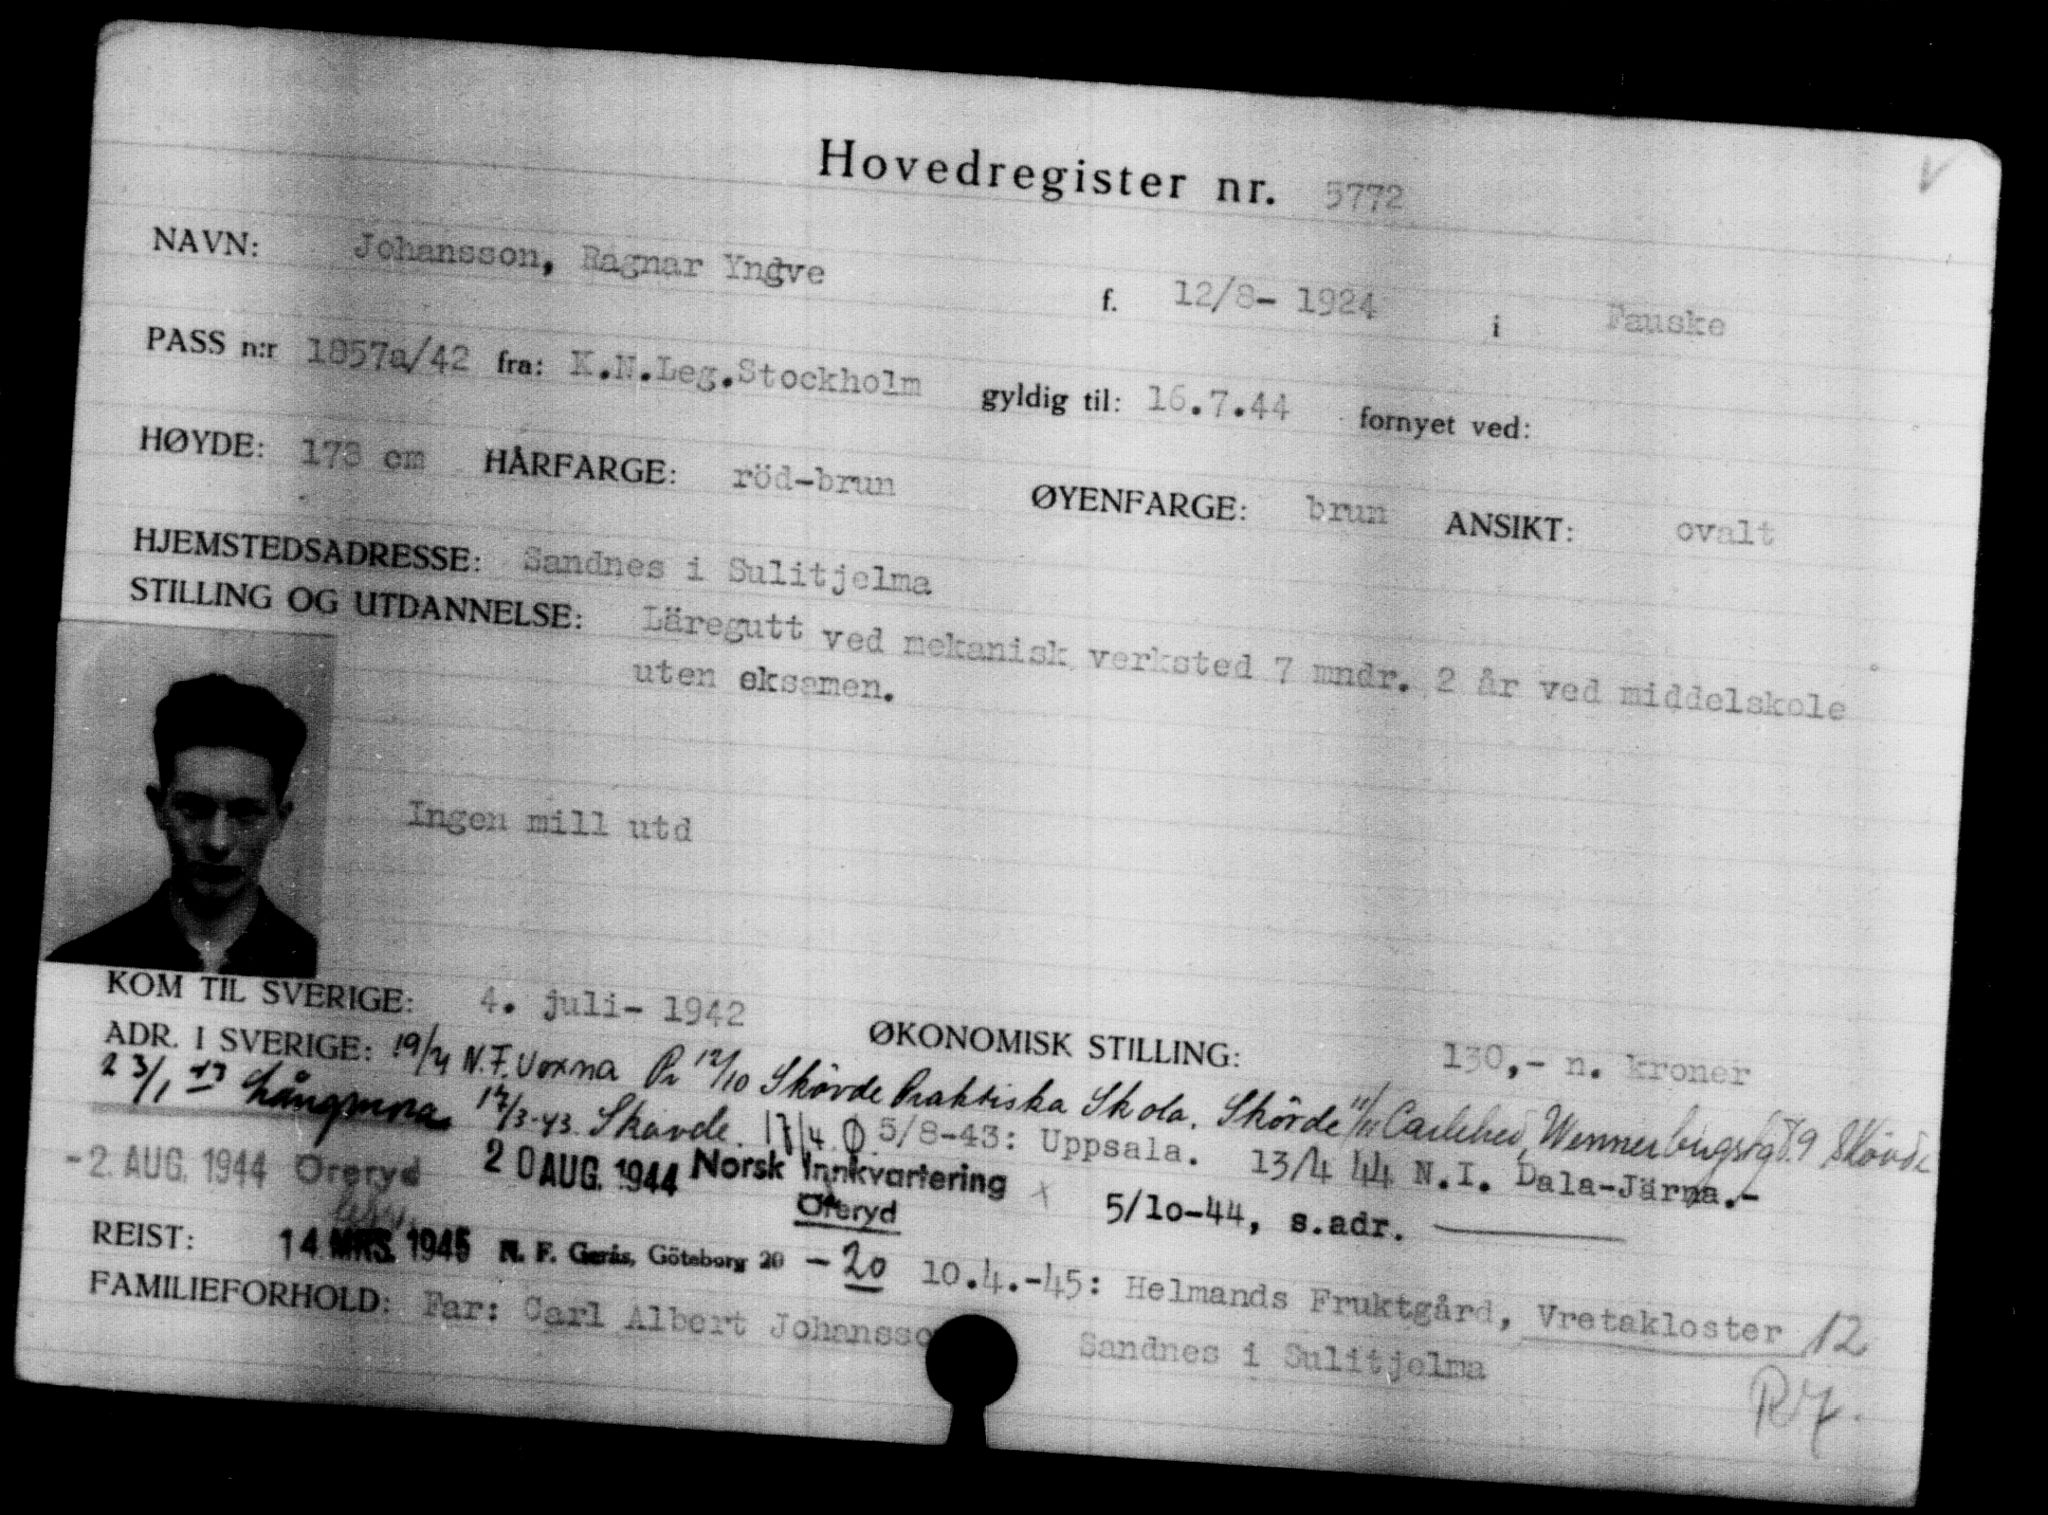 Hovedregister nr. 5772
NAVN: Johansson, Ragnar Yngve f. 12/8- 1924 i Fauske
PASS n:r 1857a/42 fra: K.N.Leg.Stockholm gyldig til: 16.7.44 fornyet ved:
HØYDE: 178 cm HÅRFARGE: röd-brun ØYENFARGE: brun ANSIKT: ovalt
HJEMSTEDSADRESSE: Sandnes i Sulitjelma
STILLING OG UTDANNELSE: Läregutt ved mekanisk verksted 7 mndr. 2 år ved middelskole
uten eksamen.
Ingen mill utd
KOM TIL SVERIGE: 4. juli- 1942 ØKONOMISK STILLING: 130,- n. kroner
ADR. I SVERIGE: N.F. Voxna 12/10 Skövde Praktiska Skola. Skövde Carlshed, Wennerbergsg. 9 Skövde
23/1 43 Långmora 17/3-43. Skövde. 5/8-43: Uppsala. 13/4 44 N.I. Dala-Järna.-
-2. AUG. 1944 Öreryd 20 AUG. 1944 Norsk Innkvartering
Öreryd
5/10-44, s.adr.
REIST: 14 MRS. 1945 N. F. Gerås, Göteborg 20 - 20 10.4.-45: Helmands Fruktgård, Vretakloster 12
FAMILIEFORHOLD: Far: Carl Albert Johansso Sandnes i Sulitjelma